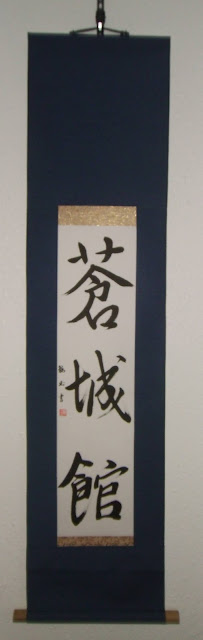 蒼城館